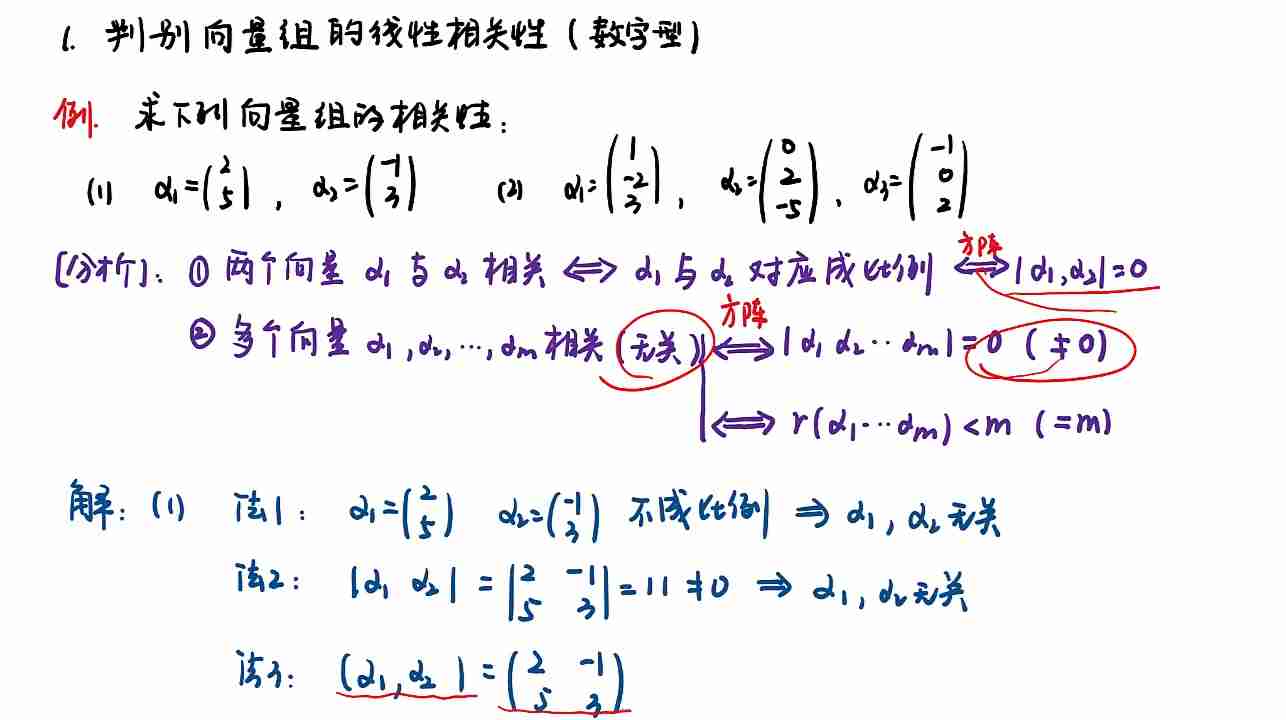 1. 判别向量组的线性相关性(数字型)
例. 求下列向量组的相关性:
(1) α₁=(2 5), α₂=(-1 3) (2) α₁=(1 -2 3), α₂=(0 2 -5), α₃=(-1 0 2)
[分析]: ① 两个向量 α₁与α₂相关 ⟺ α₁与α₂对应成比例 ⟺方阵 |α₁,α₂|=0
② 多个向量 α₁,α₂,…,αm相关(无关) ⟺方阵 |α₁ α₂…αm|=0 (≠0)
⟺ r(α₁…αm)<m (=m)
解: (1) 法1: α₁=(2 5) α₂=(-1 3) 不成比例 ⇒ α₁, α₂无关
法2: |α₁ α₂| = |2 -1 5 3| = 11 ≠ 0 ⇒ α₁, α₂无关
法3: (α₁, α₂) = (2 -1 5 3)